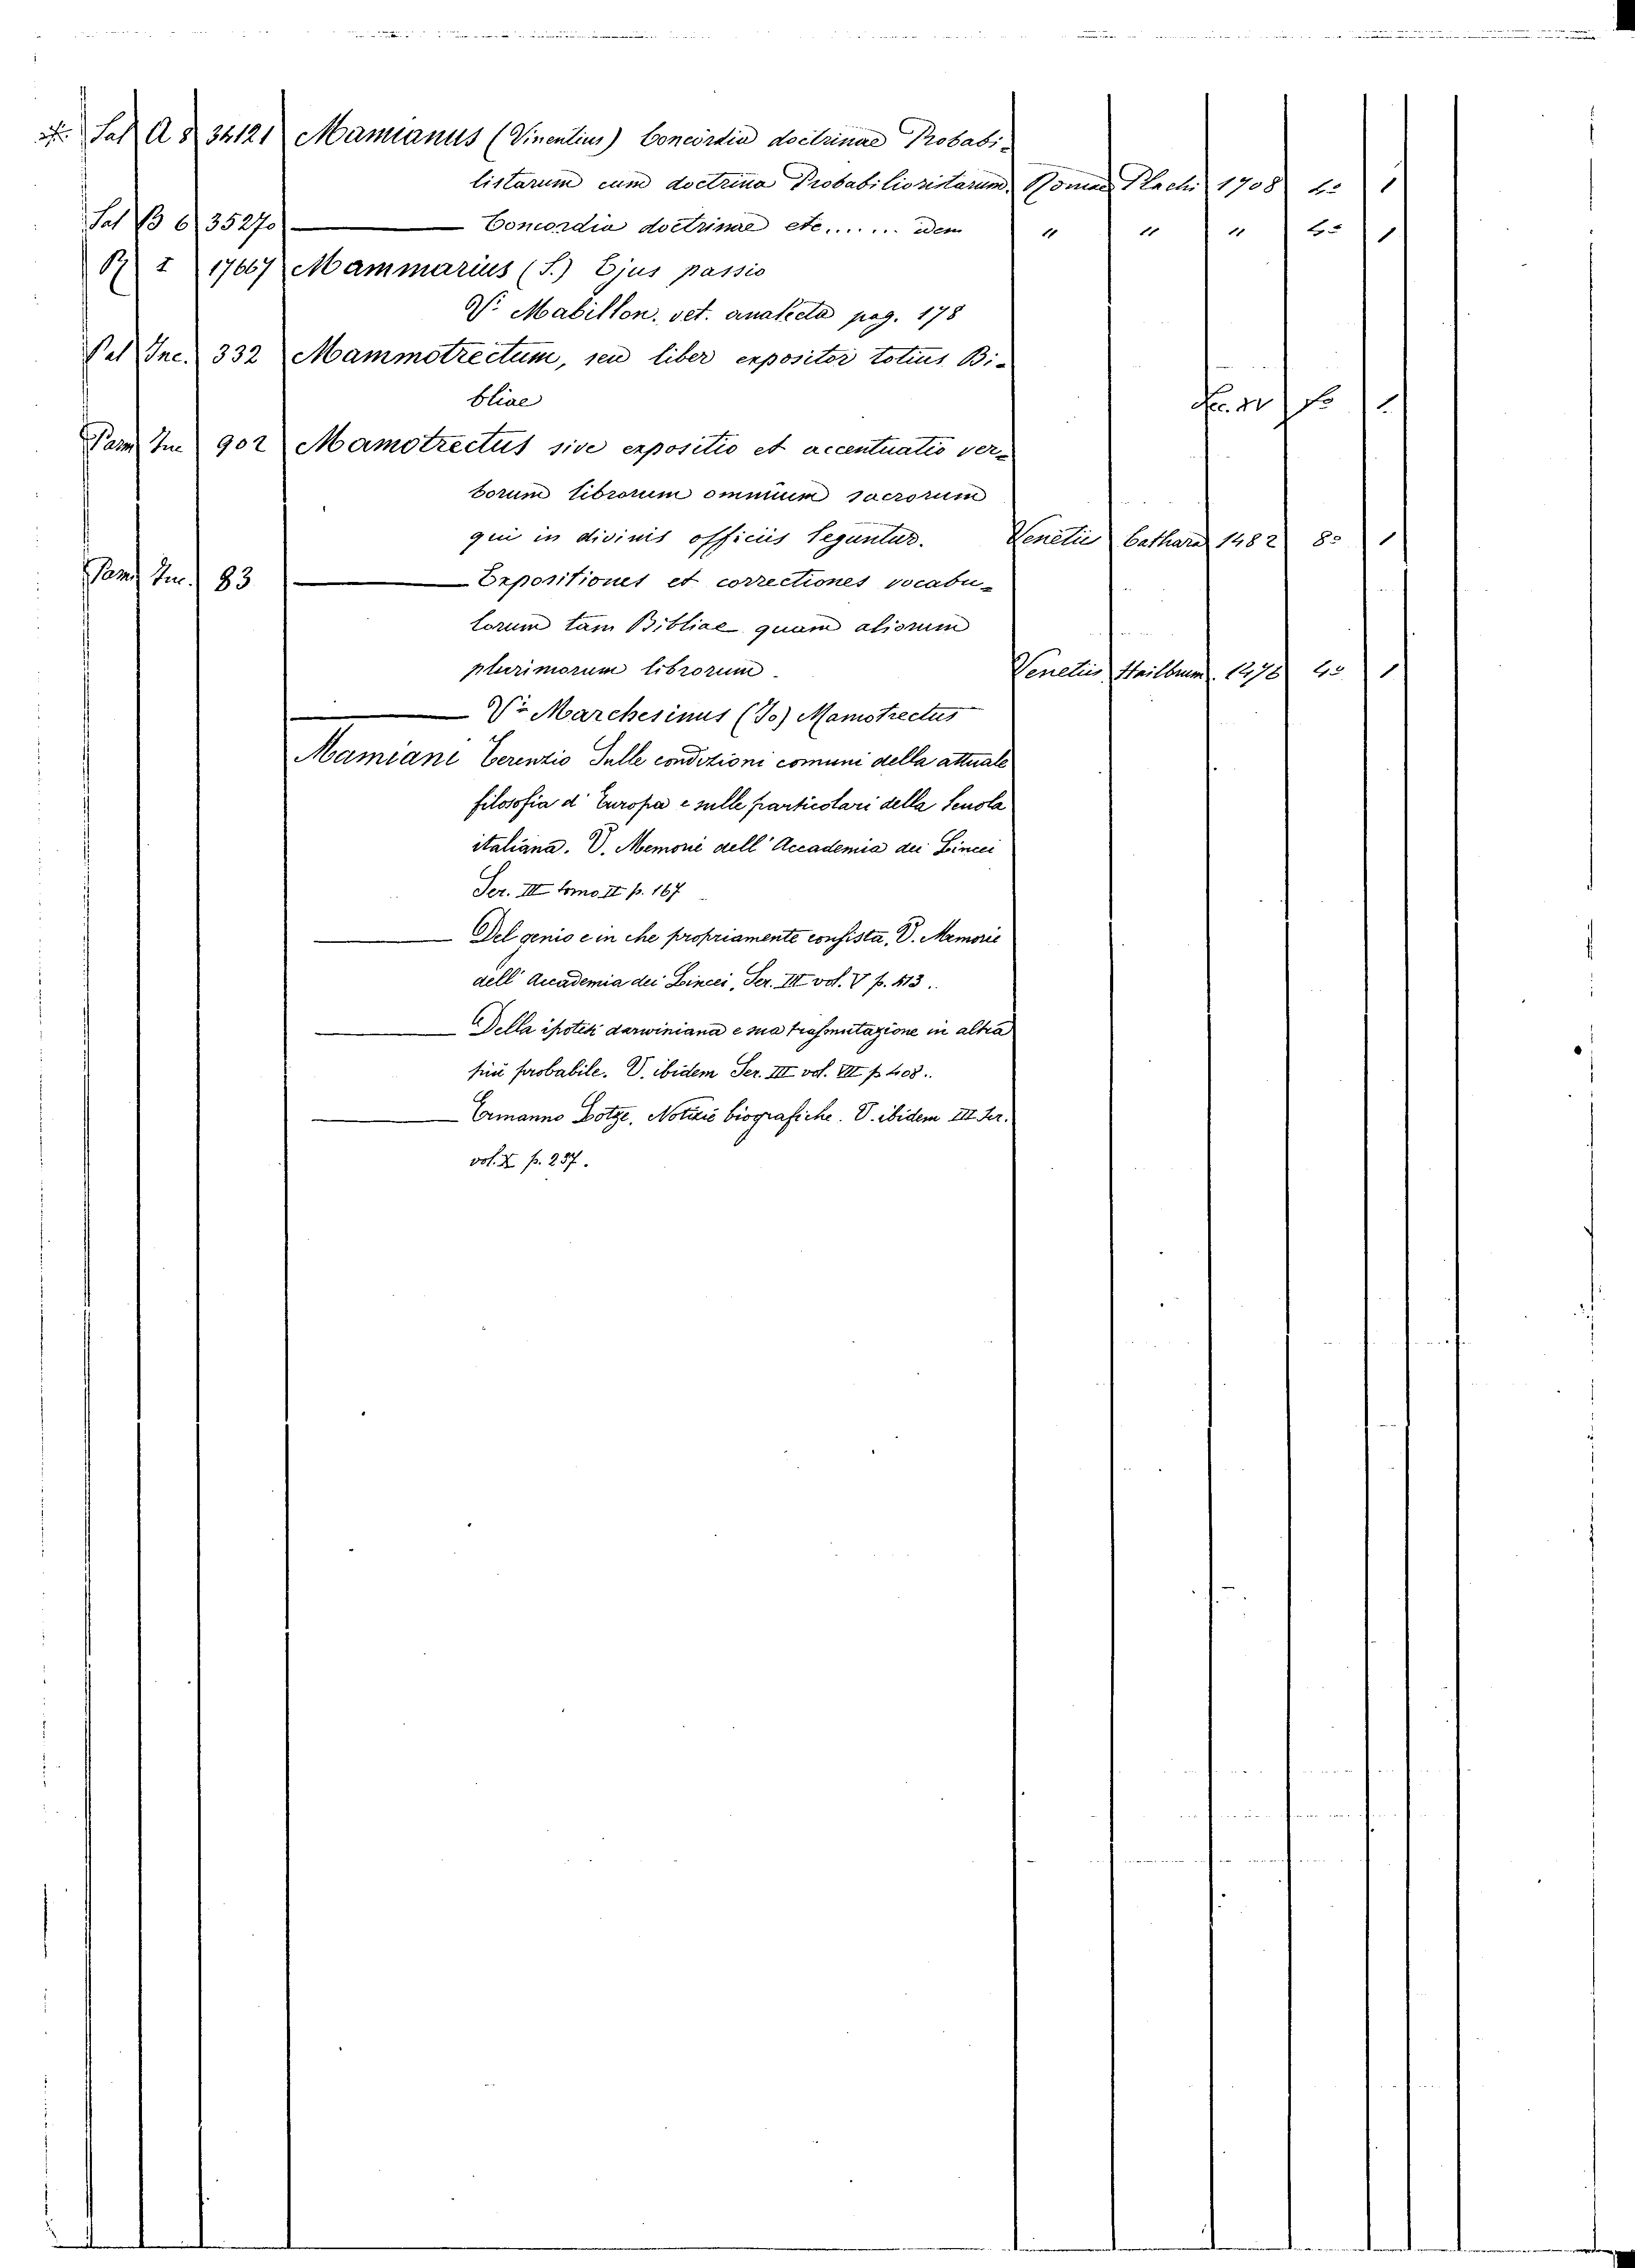 Sal A 8 34121 Mamianus (Vincentius) Concordia doctrinae Probabi-
listarum cum doctrina Probabilioristarum. Romae Plachi 1708 4o 1
Sal B 6 35270 Concordia doctrinae etc....... idem " " " 4o 1
R I 17667 Mammarius (S.) Ejus passio
Vi Mabillon. vet. analecta pag. 178
Pal Inc. 332 Mammotrectum, seu liber expositor totius Bi-
bliae Sec. XV fo 1
Parm Inc 902 Mamotrectus sive expositio et accentuatio ver-
borum librorum omnium sacrorum
qui in divinis officiis leguntur. Venetiis Cathard 1482 8o 1
Parm Inc. 83 Expositiones et correctiones vocabu-
lorum tam Bibliae quam aliorum
plurimorum librorum. Venetiis Hailbrun. 1476 4o 1
Vi Marchesinus (Jo) Mamotrectus
Mamiani Terenzio Sulle condizioni comuni della attuale
filosofia d'Europa e sulle particolari della Scuola
italiana. V. Memorie dell'Accademia dei Lincei
Ser. III tomo II p. 167
Del genio e in che propriamente consista. V. Memorie
dell'Accademia dei Lincei, Ser. III vol. V p. 413.
Della ipotesi darwiniana e sua trasmutazione in altra
più probabile. V. ibidem Ser. III vol. VII p 408.
Ermanno Lotze. Notizie biografiche. V. ibidem III Ser.
vol. X p. 237.